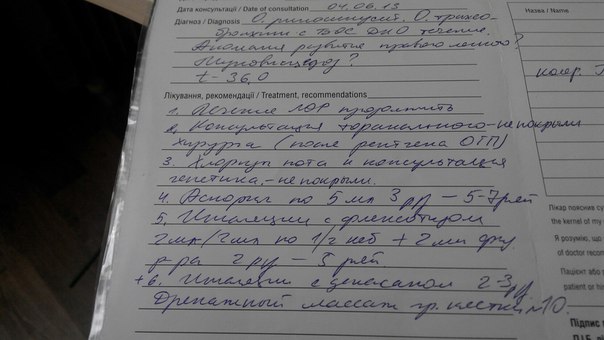 Дата консультації / Date of consultation 04.06.13
Діагноз / Diagnosis О. риносинусит. О. трахео-
бронхит с БОС ДН0 течение.
Аномалия развития правого легкого?
Муковисцидоз?
t - 36,0
Лікування, рекомендації / Treatment, recommendations
1. Лечение ЛОР продолжить
2. Консультация торакального - не покрыли
хирурга (после рентгена ОГП)
3. Хлориды пота и консультация
генетика, - не покрыли.
4. Аспорил по 5 мл 3 р/д – 5-7 дней
5. Ингаляции с фликсотидом
2мг/2мл по 1/2 неб + 2 мл физ
р-ра 2 р/д – 5 дней
+6. Ингаляции с декасаном 2-3 р/д
Дренажный массаж гр. клетки №10.
Назва / Name
Лікар пояснив
the kernel of my
Я розумію, що
of doctor recom
Пацієнт або
patient or his
Підпис
П.І.Б.